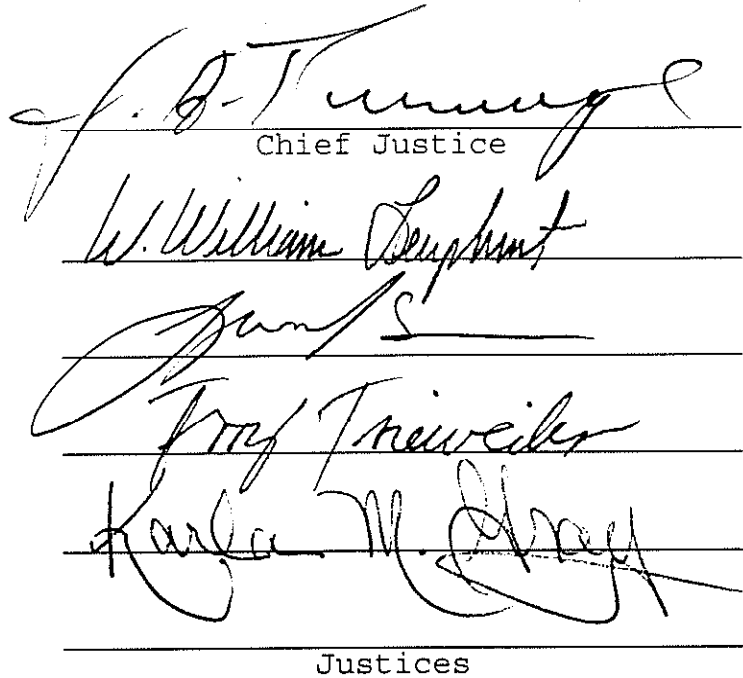 J. A. Turnage
Chief Justice
W. William Leaphart
Terry Trieweiler
Karla M. Gray
Justices